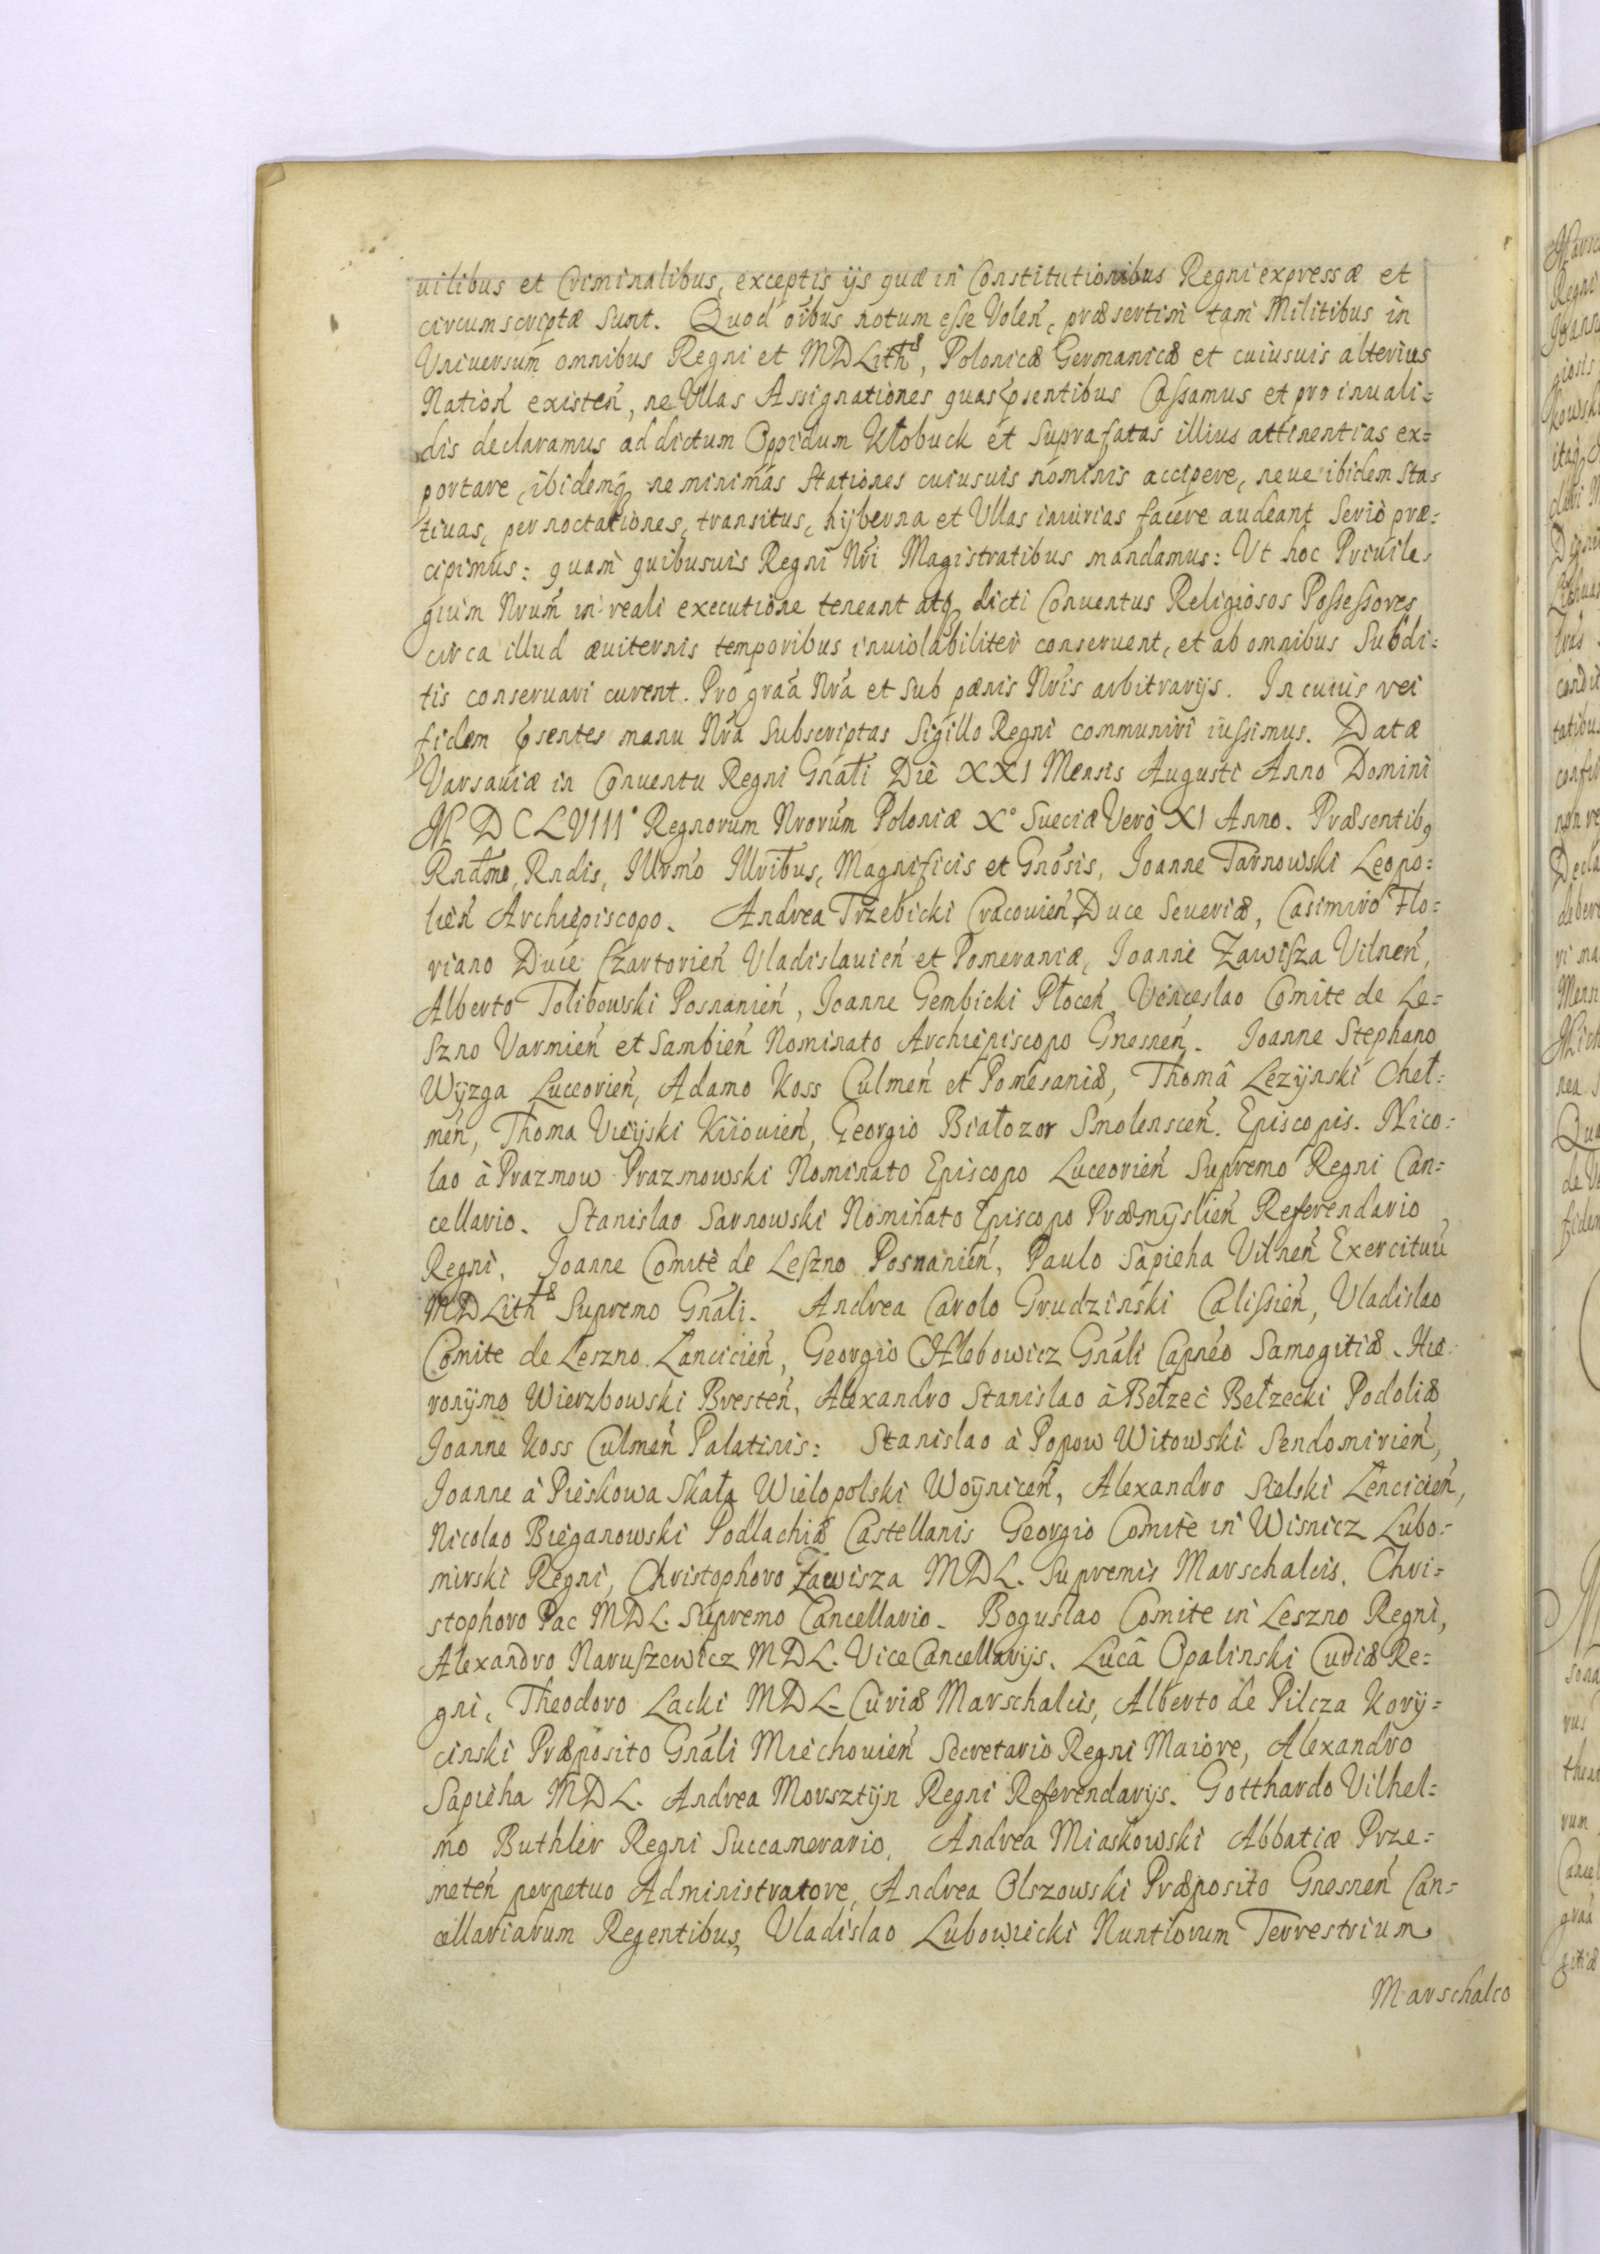 uilibus et Criminalibus, exceptis ijs quæ in Constitutionibus Regni expressæ et
circumscriptæ sunt. Quod oíbus notum esse Voleń, præsertim tam Militibus in
Universum omnibus Regni et MDLithæ, Polonicæ Germanicæ et cuiusuis alterius
Nation existeń, ne Vllas Assignationes quas pñsentibus Cassamus et pro inuali=
dis declaramus ad dictum Oppidum Kłobuck et suprafatas illius attinentias ex=
portare, ibidemq, ne minimas stationes cuiusuis nominis accipere, neue ibidem sta=
tiuas, pernoctationes, transitus, hyberna et Vllas iniurias facere audeant serio præ=
cipimus: quam quibusuis Regni Nri Magistratibus mandamus: Vt hoc Priuile=
gium Nrum in reali executione teneant atq, dicti Conuentus Religiosos Possessores
circa illud æuiternis temporibus inuiolabiliter conseruent, et ab omnibus Subdi=
tis conseruari curent. Pro graa Nra et sub pœnis Nris arbitrarijs. In cuius rei
fidem pñsentes manu Nra Subscriptas Sigillo Regni communiri iussimus. Datæ
Varsauiæ in Conuentu Regni Gnali Die XXI Mensis Augusti Anno Domini
M D C LVIII° Regnorum Nrorum Poloniæ X° Sueciæ Vero XI Anno. Præsentib9
Rndmo, Rndis, Illrmo Illribus, Magnificis et Gnosis, Joanne Tarnowski Leopo=
lień Archiepiscopo. Andrea Trzebicki Cracouień Duce Seueriæ, Casimiro Flo=
riano Duce Czartorień Vladislauień et Pomeraniæ, Joanne Zawisza Vilneń,
Alberto Tolibowski Posnanień, Joanne Gembicki Płoceń, Venceslao Comite de Le=
szno Varmień et Sambień Nominato Archiepiscopo Gnesneń. Joanne Stephano
Wyzga Luceorień, Adamo Koss Culmeń et Pomesaniæ, Thomâ Lezynski Cheł=
meń, Thoma Vieyski Kiiouień, Georgio Białozor Smolensceń. Episcopis. Nico=
lao à Prazmow Prazmowski Nominato Episcopo Luceorień Supremo Regni Can=
cellario. Stanislao Sarnowski Nominato Episcopo Præmyslień Referendario
Regni, Joanne Comite de Leszno Posnanień, Paulo Sapieha Vilneń Exercituu
MDLithæ Supremo Gnali. Andrea Carolo Grudzinski Calissień, Vladislao
Comite de Leszno Lancicień, Georgio Chlebowicz Gnali Capneo Samogitiæ. Hie=
ronymo Wierzbowski Bresteń, Alexandro Stanislao à Bełzec Bełzecki Podoliæ
Joanne Koss Culmeń Palatinis: Stanislao à Popow Witowski Sendomirień,
Joanne à Pieskowa Skała Wielopolski Woyniceń, Alexandro Sielski Lencicień,
Nicolao Bieganowski Podlachiæ Castellanis Georgio Comite in Wisnicz Lubo=
mirski Regni, Christophoro Zawisza MDL. Supremis Marschalcis. Chri=
stophoro Pac MDL. Supremo Cancellario. Boguslao Comite in Leszno Regni,
Alexandro Naruszewicz MDL. Vice Cancellarijs. Lucâ Opalinski Curiæ Re=
gni, Theodoro Lacki MDL. Curiæ Marschalcis, Alberto de Pilcza Kory=
cinski Præposito Gnali Miechouień Secretario Regni Maiore, Alexandro
Sapieha MDL. Andrea Morsztyn Regni Referendarijs. Gotthardo Vilhel=
mo Buthler Regni Succamerario, Andrea Miaskowski Abbatiæ Prze=
meteń perpetuo Administratore, Andrea Olszowski Præposito Gnesneń Can=
cellariarum Regentibus, Vladislao Lubowiecki Nuntiorum Terrestrium
Marschalco